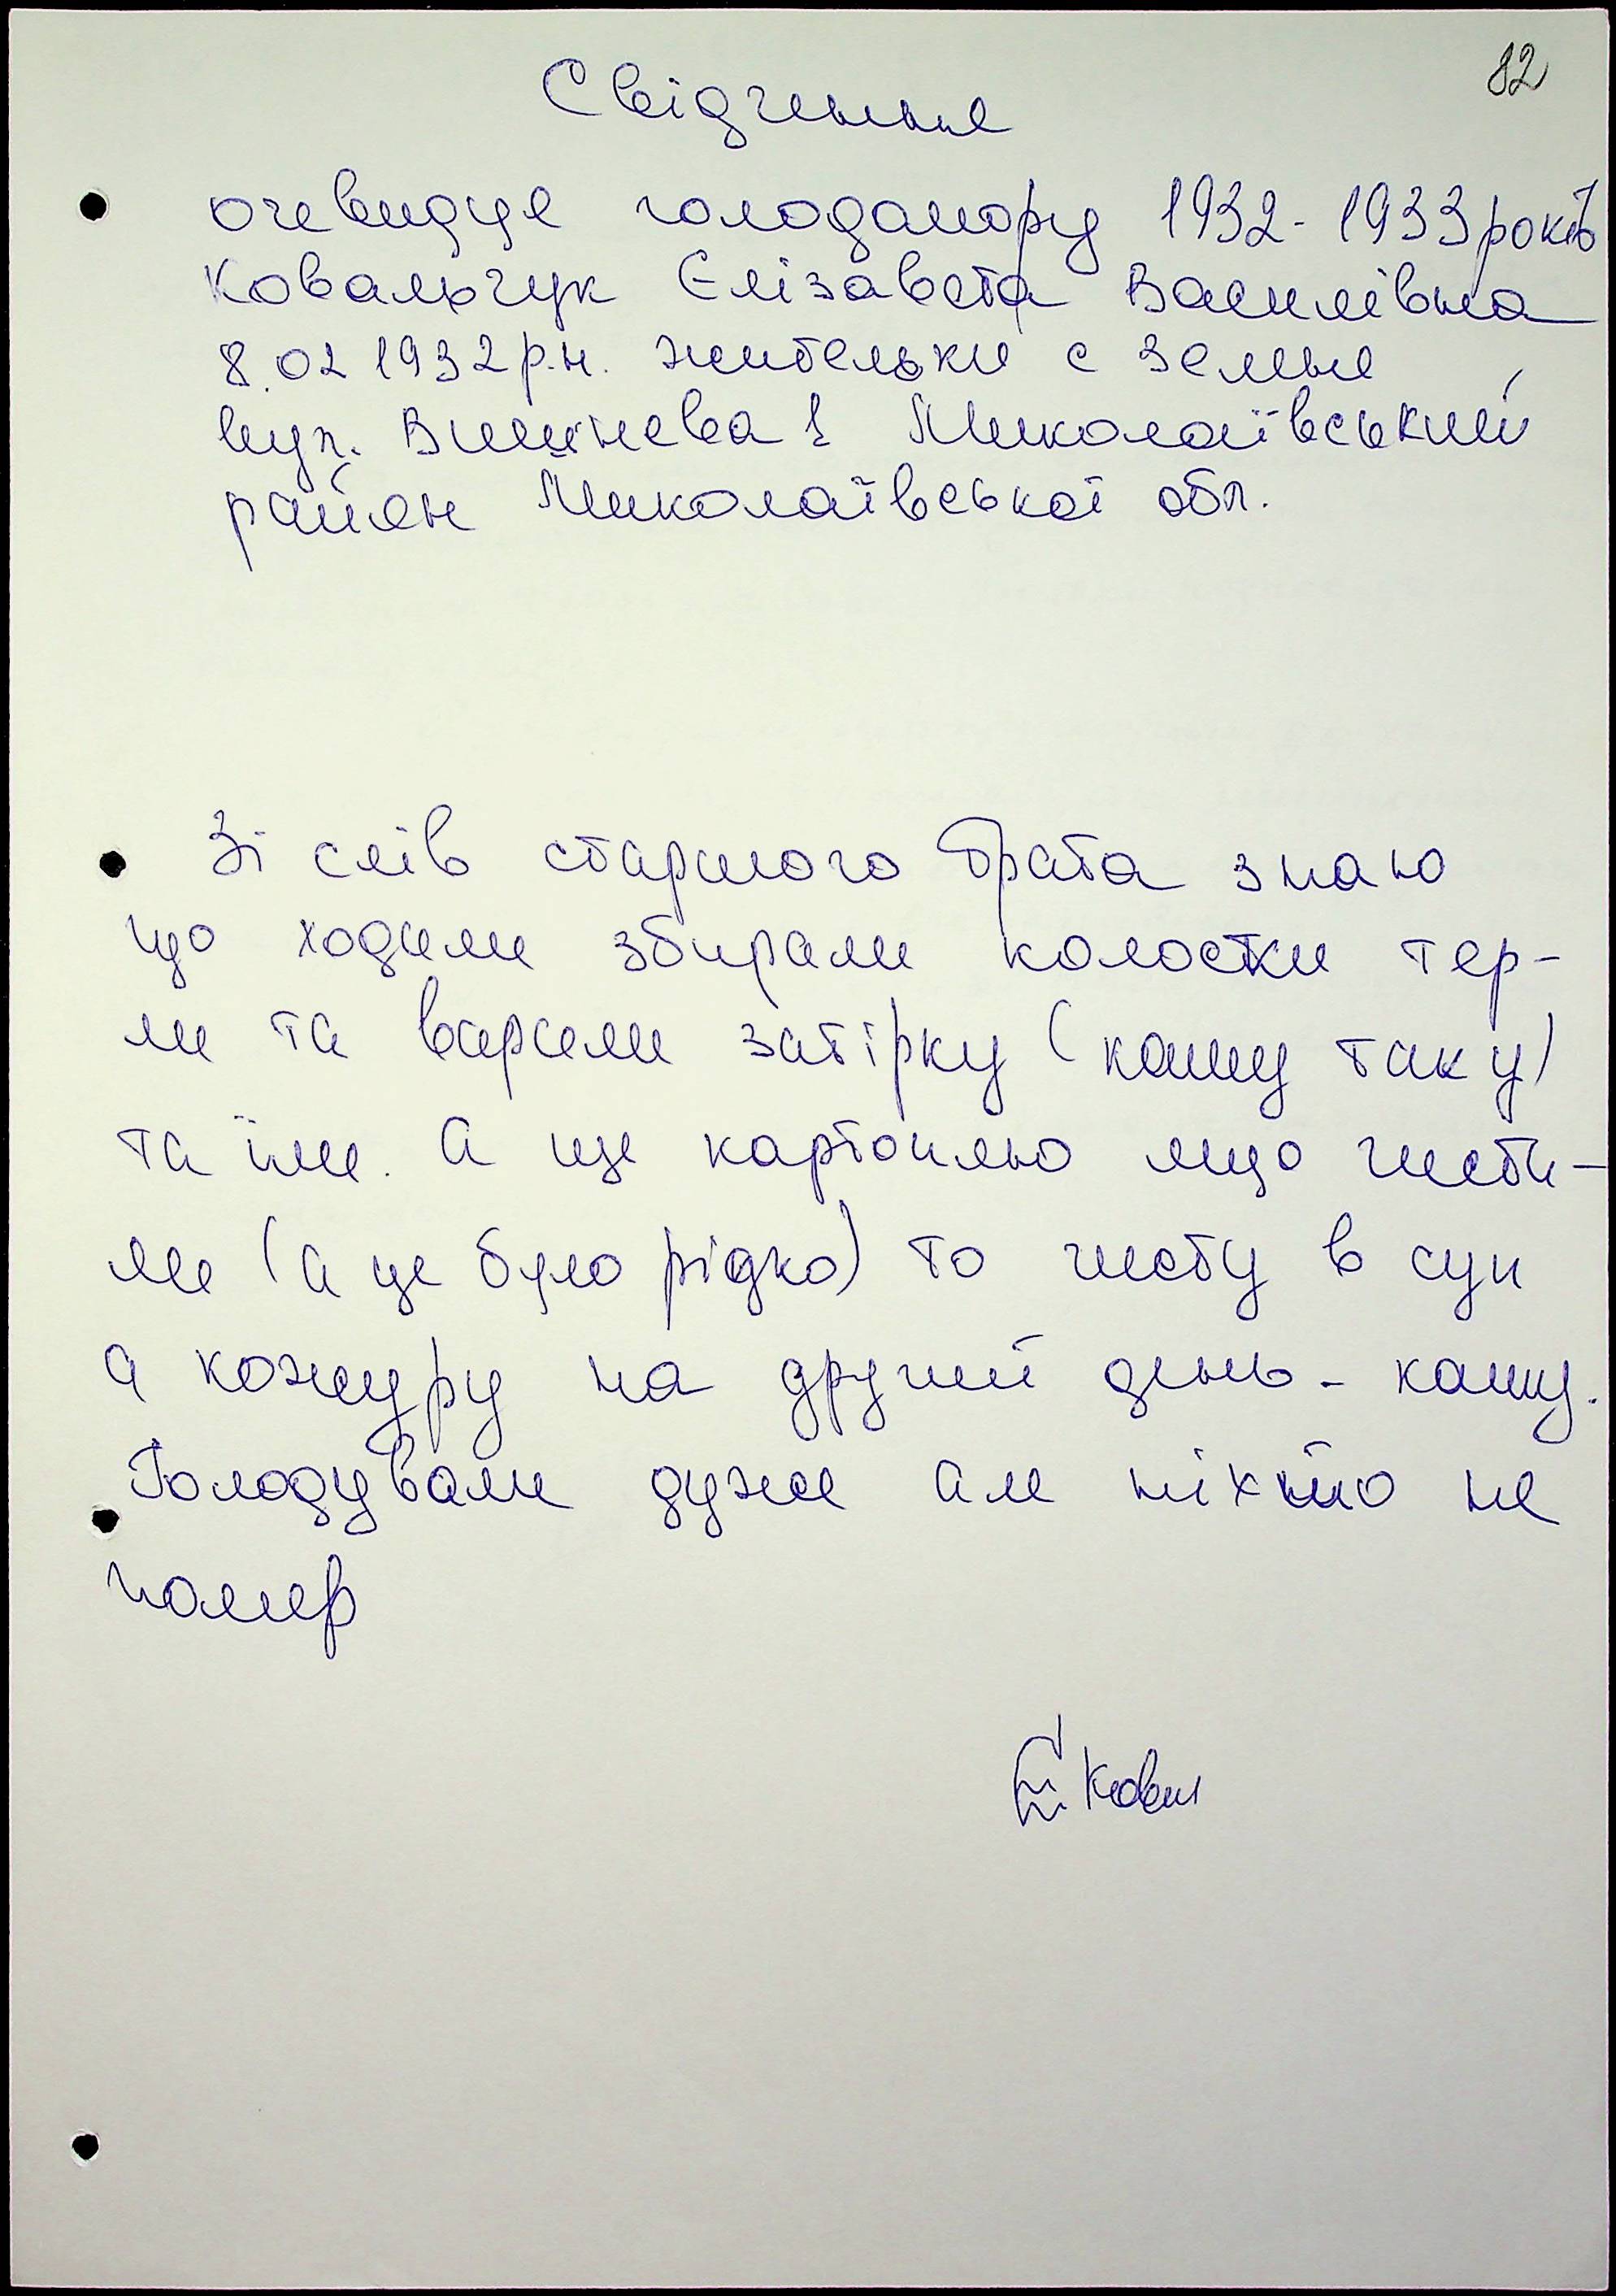 82
Свідчення
очевидця голодамору 1932-1933років
Ковальчук Єлізавєта Василівна
8.02 1932р.н. жительки с Зелене
вул. Вишнева 1 Миколаївський
район Миколаївської обл.
Зі слів старшого брата знаю
що ходили збирали колостки тер-
ли та варили затірку (кашу таку)
та їли. А ще картоплю якщо чисти-
ли (а це було рідко) то чисту в суп
а кожуру на другий день - кашу.
Голодували дуже але ніхто не
помер